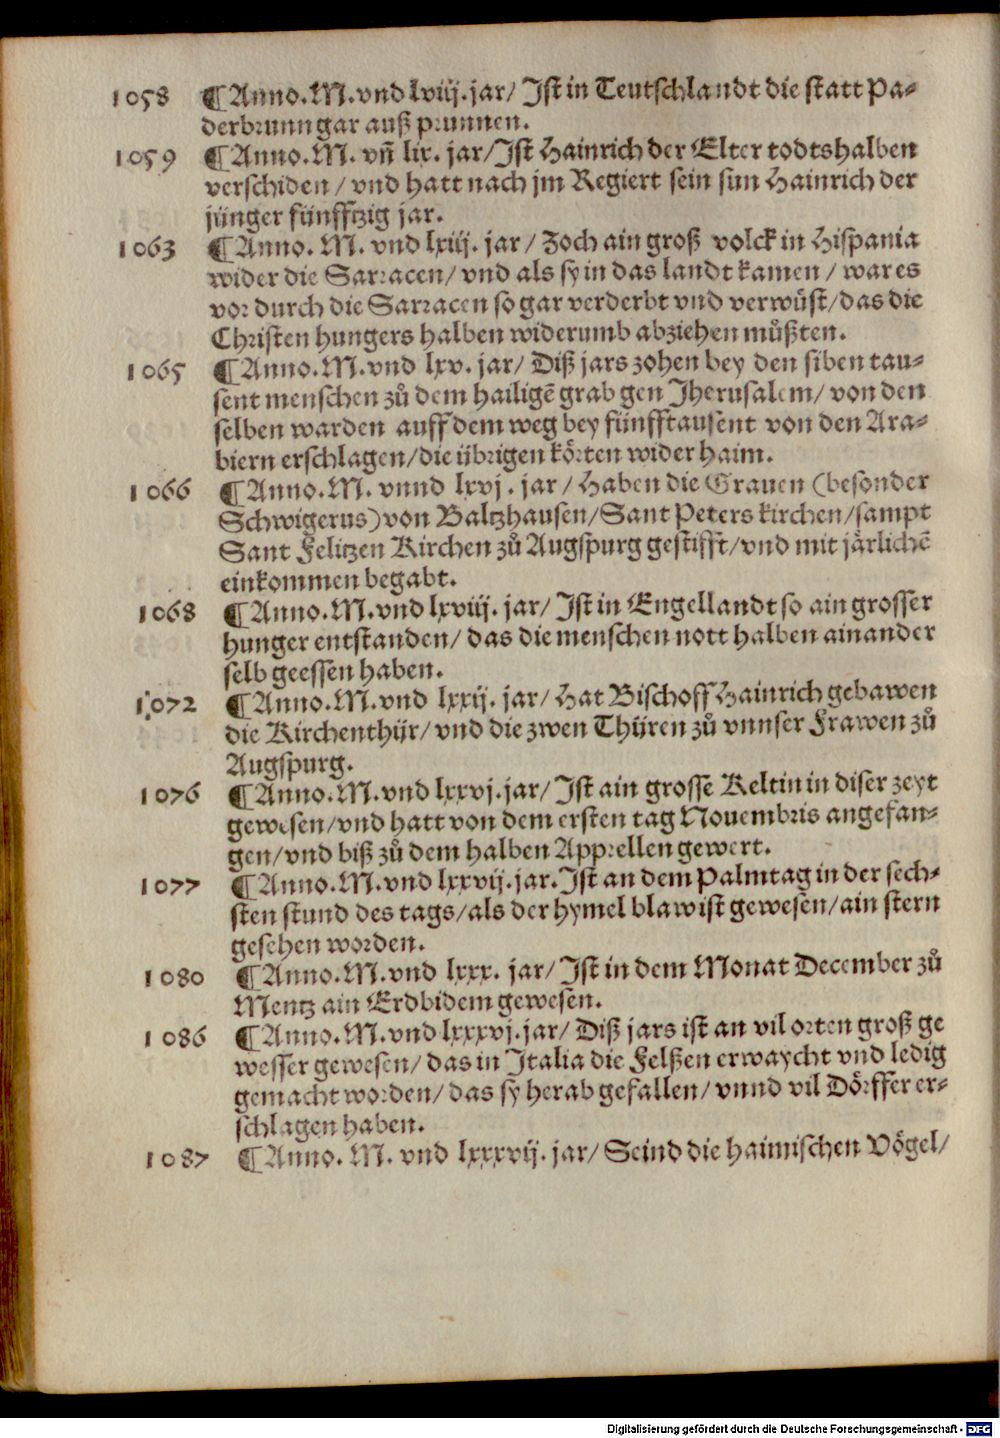 1058 ¶Anno.M.vnd lviij.jar/ Ist in Teutschlandt die statt Pa⸗
derbrunn gar auß prunnen.
1059 ¶Anno.M. vñ lix. jar/Ist Hainrich der Elter todtshalben
verschiden/ vnd hatt nach jm Regiert sein sun Hainrich der
jünger fünfftzig jar.
1063 ¶Anno. M. vnd lxiij. jar/ Zoch ain groß volck in Hispania
wider die Sarracen/ vnd als sy in das landt kamen/ war es
vor durch die Sarracen so gar verderbt vnd verwüst/das die
Christen hungers halben widerumb abziehen můßten.
1065 ¶Anno.M.vnd lxv. jar/ Diß jars zohen bey den siben tau⸗
sent menschen zů dem hailigẽ grab gen Jherusalem/ von den
selben warden auff dem weg bey fünfftausent von den Ara⸗
biern erschlagen/die übrigen körten wider haim.
1066 ¶Anno.M. vnnd lxvj. jar/ Haben die Grauen (besonder
Schwigerus) von Baltzhausen/Sant Peters kirchen/sampt
Sant Felitzen Kirchen zů Augspurg gestifft/vnd mit järlichẽ
einkommen begabt.
1068 ¶Anno.M.vnd lxviij. jar/ Ist in Engellandt so ain grosser
hunger entstanden/ das die menschen nott halben ainander
selb geessen haben.
1072 ¶Anno.M.vnd lxxij. jar/ Hat Bischoff Hainrich gebawen
die Kirchenthür/ vnd die zwen Thüren zů vnnser Frawen zů
Augspurg.
1076 ¶Anno.M.vnd lxxvj.jar/ Ist ain grosse Keltin in diser zeyt
gewesen/vnd hatt von dem ersten tag Nouembris angefan⸗
gen/vnd biß zů dem halben Apprellen gewert.
1077 ¶Anno.M.vnd lxxvij.jar.Ist an dem Palmtag in der sech⸗
sten stund des tags/als der hymel blaw ist gewesen/ain stern
gesehen worden.
1080 ¶Anno.M.vnd lxxx. jar/ Ist in dem Monat December zů
Mentz ain Erdbidem gewesen.
1086 ¶Anno.M.vnd lxxxvj.jar/ Diß jars ist an vil orten groß ge
wesser gewesen/ das in Italia die Felßen erwaycht vnd ledig
gemacht worden/ das sy herab gefallen/ vnnd vil Dörffer er⸗
schlagen haben.
1087 ¶Anno. M. vnd lxxxvij. jar/ Seind die haimischen Vögel/
Digitalisierung gefördert durch die Deutsche Forschungsgemeinschaft - DFG